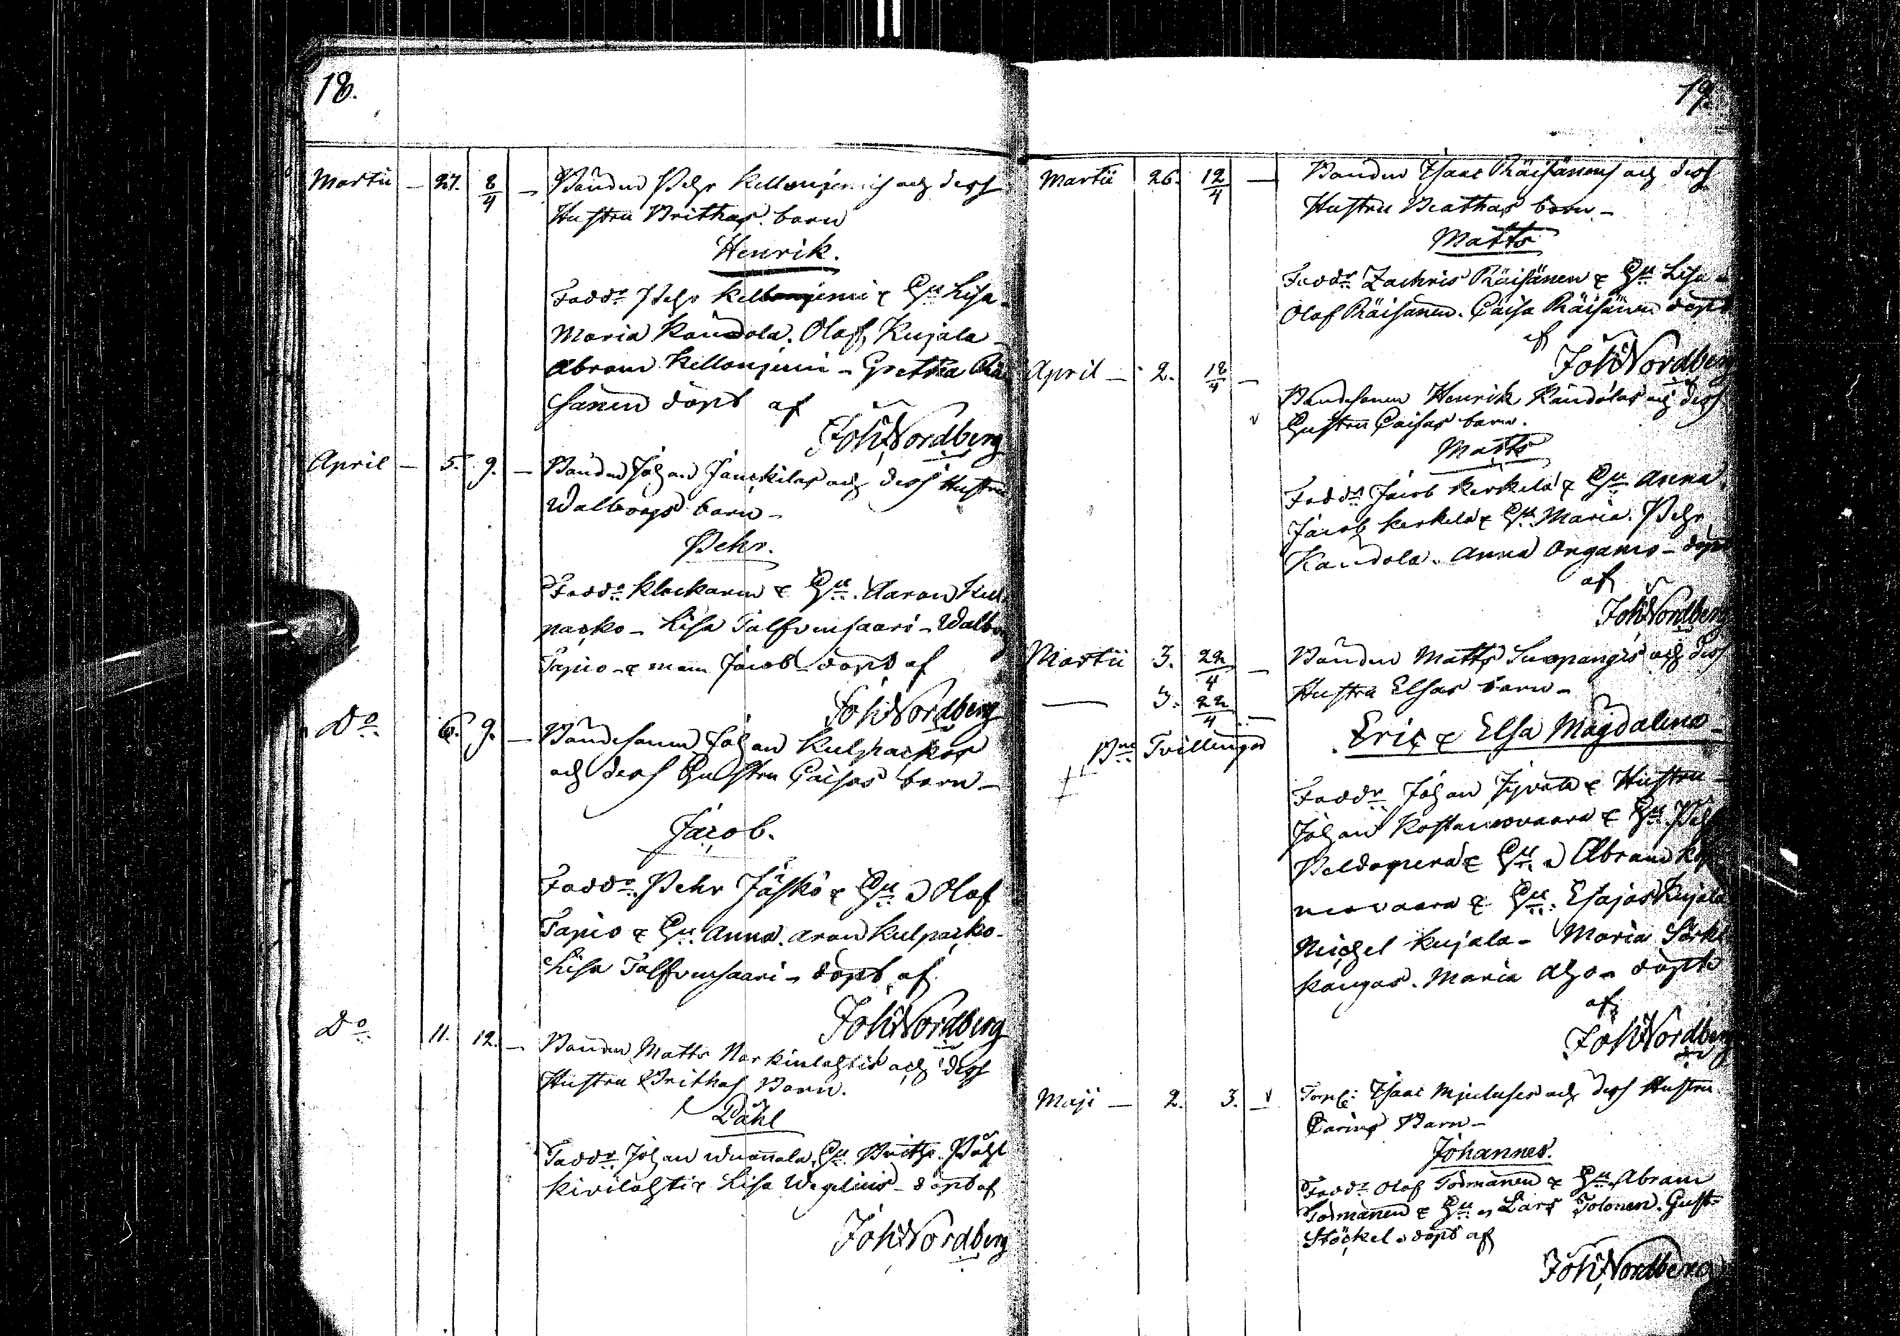 18.
Martii — 27. 8/4 — Bonden Pehr Kellonjemis och dess
Hustru Brithas barn
Henrik.
Fadd: Pehr Kellonjemi & Hu Lisa
Maria Kandola. Olof Kujala
Abram Kellonjemi — Gretha Räi
sänen döpt af
Joh: Nordberg
April — 5. 9. — Bonden Johan Hustru
Walborgs barn —
Pehr.
Fadd: Klockaren & Hu. Aaron Kul
packo — Lisa Talfvensaari — Walborg
Tapio & man Jacob döpt af
Joh: Nordberg
Do 6. 9. — Bondesonen Johan Kulpackos
och dess Hustru Caisas barn —
Jacob.
Fadd: Pehr Jäskö & Hu Olof
Tapio & Hu Anna. Aron Kulpacko
Lisa Talfvensaari — döpt af
Joh: Nordberg
Do 11. 12. — Bonden Matts och dess
Hustru Brithas Barn.
Påhl
Fadd: Johan Hu Britha. Påhl
Kivilahti & Lisa Wegelius — döpt af
Joh: Nordberg
19.
Martii 26. 12/4 — Bonden Isaac Räisänens och dess
Hustru Beathas barn —
Matts
Fadd: Zachris Räisänen & Hu Lisa
Olof Räisänen. Caisa Räisänen döpt
af
Joh: Nordberg
April — 2. 18/4 — Bondesonen Henrik Kandolas och dess
Hustru Caisas barn.
Matts
Fadd: Jacob Kerkelä & Hu Anna.
Jacob Kerkelä & Hu Maria. Pehr
Kandola. Anna — döpt
af
Joh: Nordberg
Martii 3. 22/4 — Bonden Matts och dess
— 3. 22/4 — Hustru Elsas barn —
Eric & Elsa Magdalena
Tvillingar
Fadd: Johan & Hustru
Johan & Hu
& Hu Abram
& Hu: Esajas Kujala
Michel Kujala — Maria
kangas. Maria döpte
af
Joh: Nordberg
Maji — 2. 3. — Isaac och dess Hustru
Carins Barn —
Johannes.
Fadd: Olof Tormänen & Hu Abram
Tormänen & Hu Lars Tolonen. Gust:
Stöckel döpt af
Joh: Nordberg